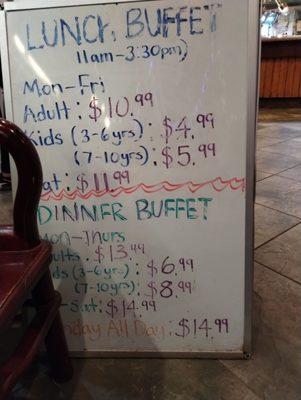 LUNCH BUFFET
11am-3:30pm)
Mon-Fri
Adult: $10.99
Kids (3-6yrs): $4.99
(7-10yrs): $5.99
at: $11.99
DINNER BUFFET
Mon-Thurs
dults: $13.99
ids (3-6yrs): $6.99
(7-10yrs): $8.99
-Sat: $14.99
nday All Day: $14.99